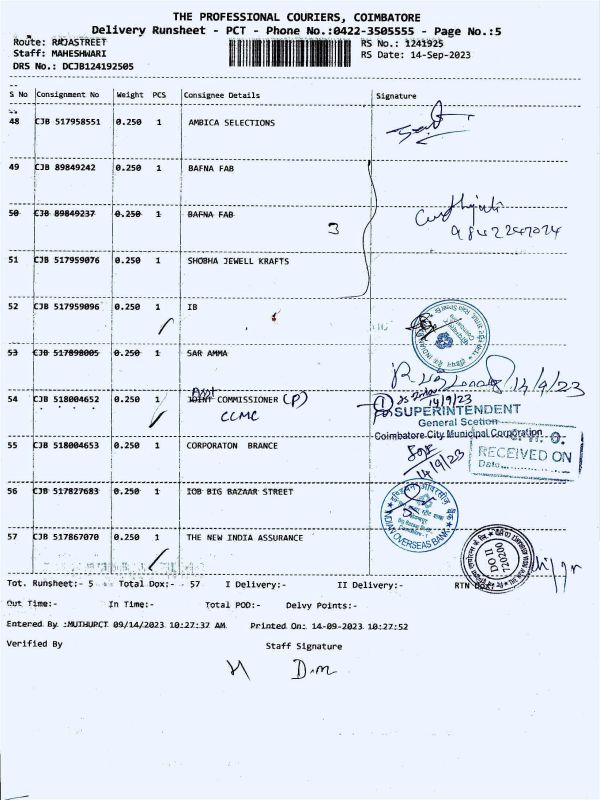 THE PROFESSIONAL COURIERS, COIMBATORE
Delivery Runsheet - PCT - Phone No.:0422-3505555 - Page No.:5
Route: RAJASTREET
RS No.: 1241925
Staff: MAHESHWARI
RS Date: 14-Sep-2023
DRS No.: DCJB124192505
S No Consignment No Weight PCS Consignee Details Signature
48 CJB 517958551 0.250 1 AMBICA SELECTIONS
49 CJB 89849242 0.250 1 BAFNA FAB
50 CJB 89849237 0.250 1 BAFNA FAB
3
51 CJB 517959076 0.250 1 SHOBHA JEWELL KRAFTS
52 CJB 517959096 0.250 1 IB
53 CJB 517898005 0.250 1 SAR AMMA
14/9/23
Asst
54 CJB 518004652 0.250 1 JOINT COMMISSIONER (P)
CCMC
14/9/23
SUPERINTENDENT
General Scetion
Coimbatore City Municipal Corporation
55 CJB 518004653 0.250 1 CORPORATON BRANCE
14/9/23
RECEIVED ON
Date
56 CJB 517827683 0.250 1 IOB BIG BAZAAR STREET
INDIAN OVERSEAS BANK
57 CJB 517867070 0.250 1 THE NEW INDIA ASSURANCE
DO II
720200
Tot. Runsheet:- 5 Total Dox:- 57 I Delivery:- II Delivery:- RTN
Out Time:- In Time:- Total POD:- Delvy Points:-
Entered By :MUTHUPCT 09/14/2023 10:27:37 AM Printed On: 14-09-2023 10:27:52
Verified By Staff Signature